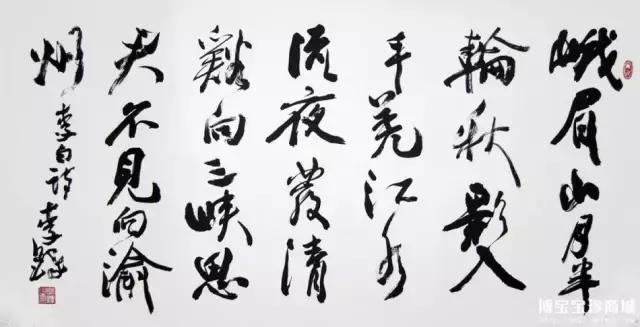 峨眉山月半
輪秋影入
平羌江水
流夜發清
谿向三峡思
君不見向渝
州
李白詩 李鐸
博宝宝珍商城